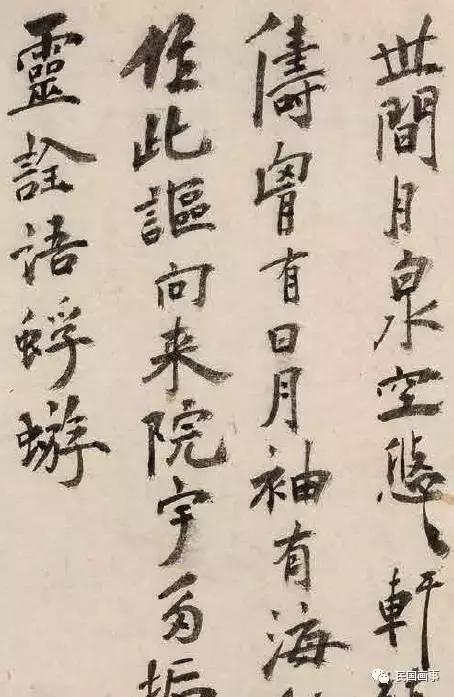 世間月泉空悠々軒
儔胷有日月袖有海
作此謳向来院宇多
靈詮語蜉蝣
民国画事